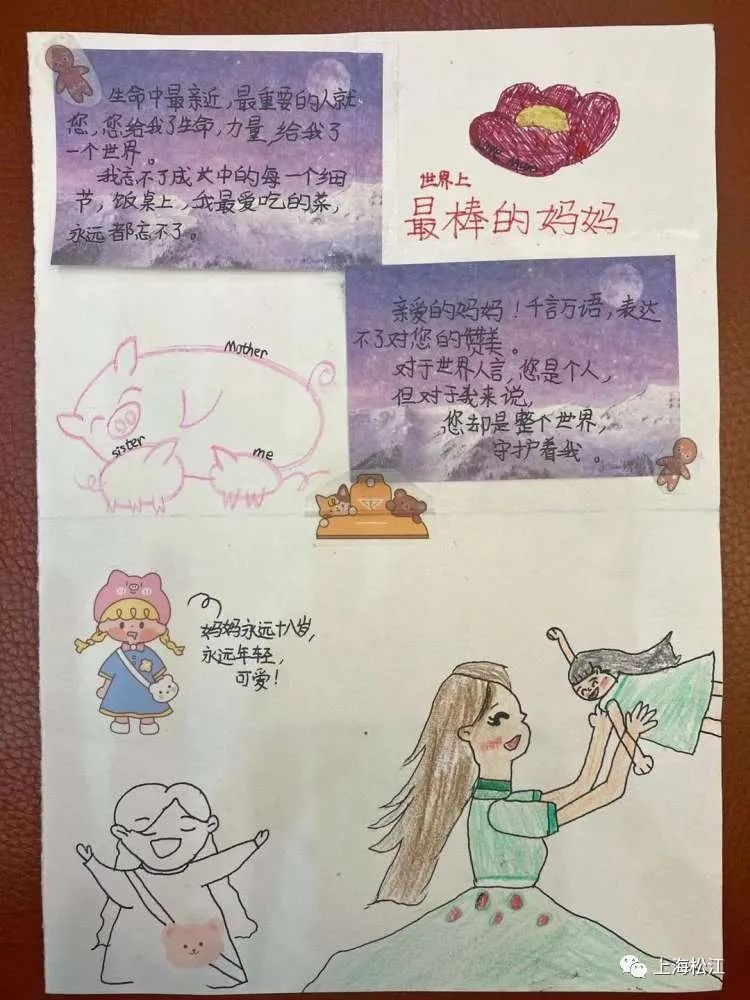 生命中最亲近，最重要的人就
您，您给我了生命，力量，给我了
一个世界。
我忘不了成长中的每一个细
节，饭桌上，我最爱吃的菜，
永远都忘不了。
世界上
最棒的妈妈
亲爱的妈妈！千言万语，表达
不了对您的赞美。
对于世界人言，您是个人，
但对于我来说，
您却是整个世界，
守护着我。
Mother
sister
me
妈妈永远十八岁，
永远年轻，
可爱！
上海松江